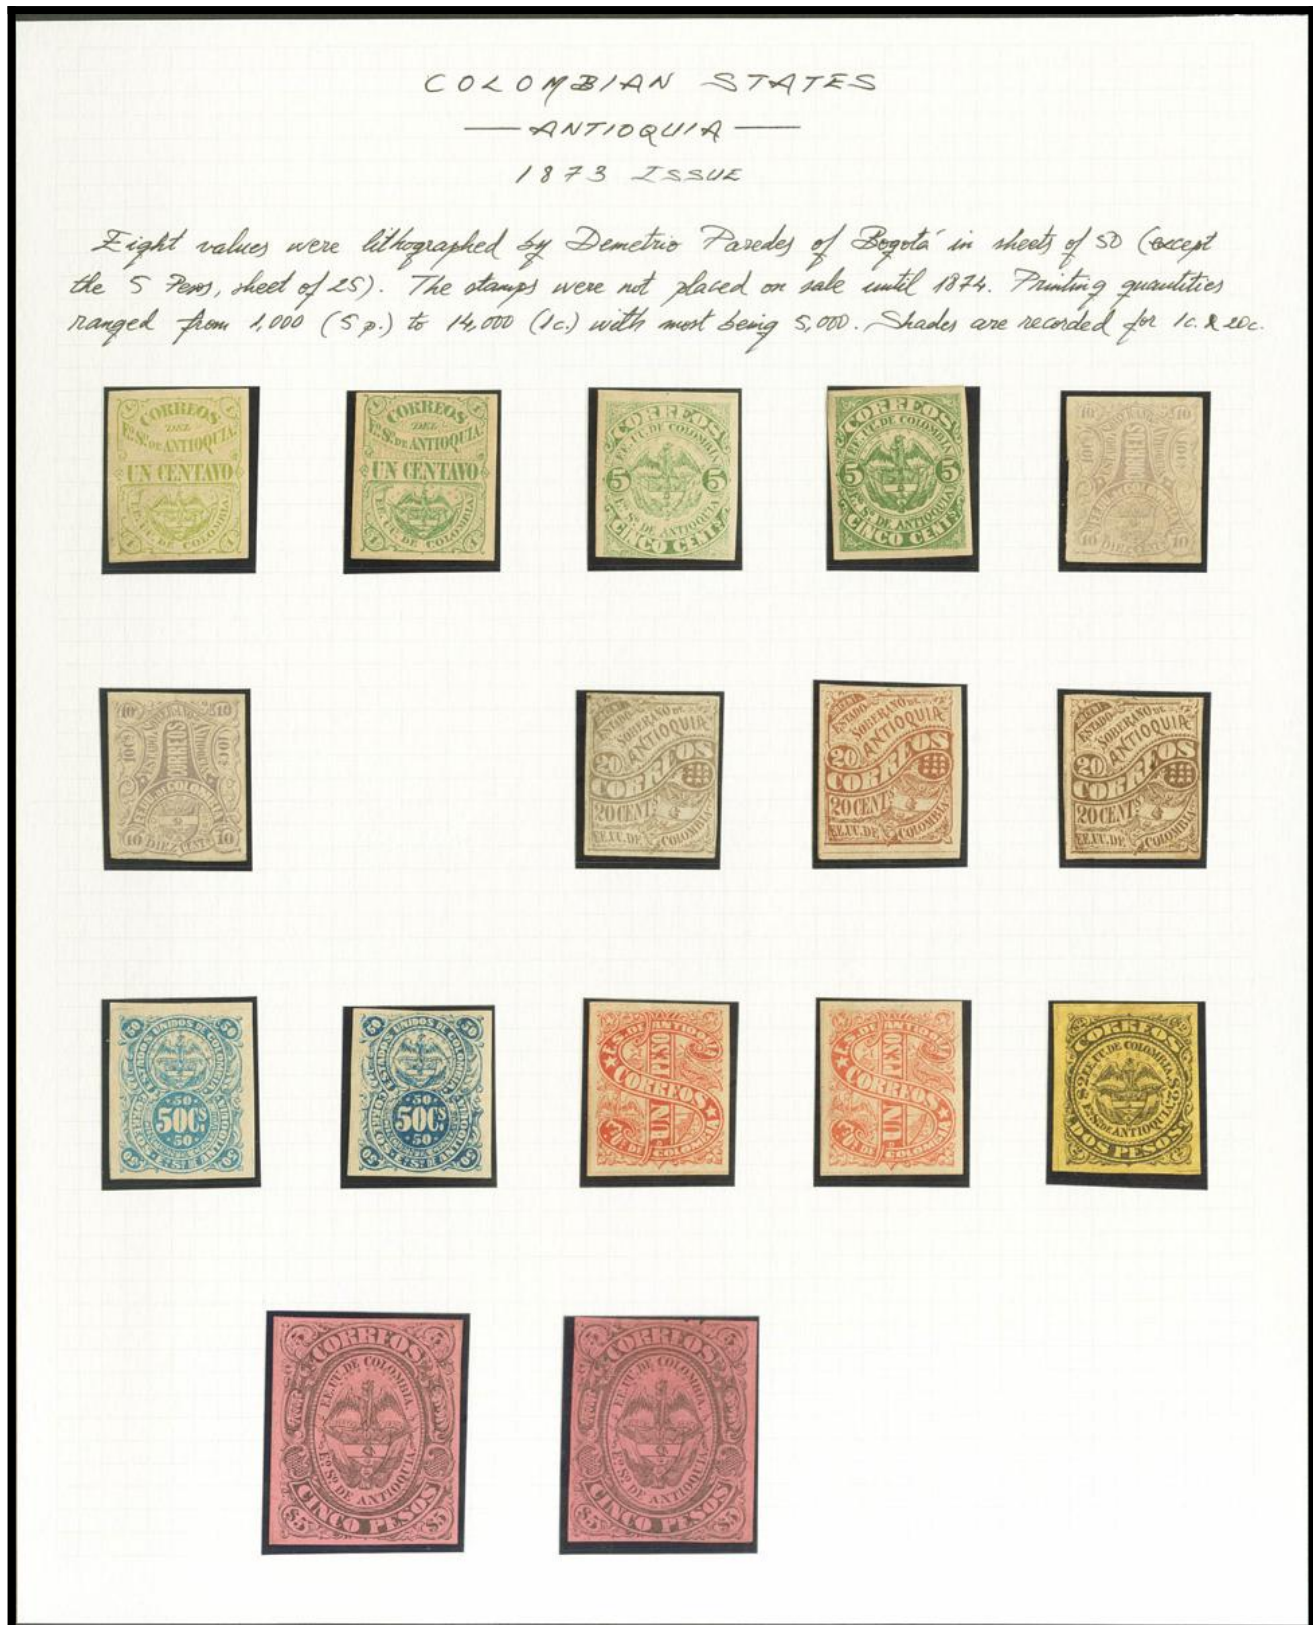 COLOMBIAN STATES
— ANTIOQUIA —
1873 ISSUE
Eight values were lithographed by Demetrio Paredes of Bogotá in sheets of 50 (except
the 5 Pesos, sheet of 25). The stamps were not placed on sale until 1874. Printing quantities
ranged from 1,000 (5 p.) to 14,000 (1c.) with most being 5,000. Shades are recorded for 1c. & 20c.
CORREOS
DEL
Eº. Sº. DE ANTIOQUIA.
UN CENTAVO
EE. U. DE COLOMBIA
CORREOS
DEL
Eº. Sº. DE ANTIOQUIA.
UN CENTAVO
EE. U. DE COLOMBIA
CORREOS
EE. UU. DE COLOMBIA
5 5
Eº. Sº. DE ANTIOQUIA
CINCO CENTS.
CORREOS
EE. UU. DE COLOMBIA
5 5
Eº. Sº. DE ANTIOQUIA
CINCO CENTS.
10 10
CORREOS
EE. UU. DE COLOMBIA
10 DIEZ CENTS 10
10 10
CORREOS
EE. UU. DE COLOMBIA
10 DIEZ CENTS 10
ESTADO SOBERANO DE
ANTIOQUIA
20
CORREOS
20 CENTS
EE. UU. DE COLOMBIA
ESTADO SOBERANO DE
ANTIOQUIA
20
CORREOS
20 CENTS
EE. UU. DE COLOMBIA
ESTADO SOBERANO DE
ANTIOQUIA
20
CORREOS
20 CENTS
EE. UU. DE COLOMBIA
50 50
ESTADOS UNIDOS DE COLOMBIA
50
50 CS
50
CORREOS Eº. Sº. DE ANTIOQUIA
50 50
50 50
ESTADOS UNIDOS DE COLOMBIA
50
50 CS
50
CORREOS Eº. Sº. DE ANTIOQUIA
50 50
Eº. S. DE ANTIOQUIA
UN PESO
CORREOS
E. U. DE COLOMBIA
Eº. S. DE ANTIOQUIA
UN PESO
CORREOS
E. U. DE COLOMBIA
CORREOS
EE. UU. DE COLOMBIA
Eº. Sº. DE ANTIOQUIA
DOS PESOS
CORREOS
EE. UU. DE COLOMBIA.
Eº. Sº. DE ANTIOQUIA
CINCO PESOS
$5 $5
CORREOS
EE. UU. DE COLOMBIA.
Eº. Sº. DE ANTIOQUIA
CINCO PESOS
$5 $5